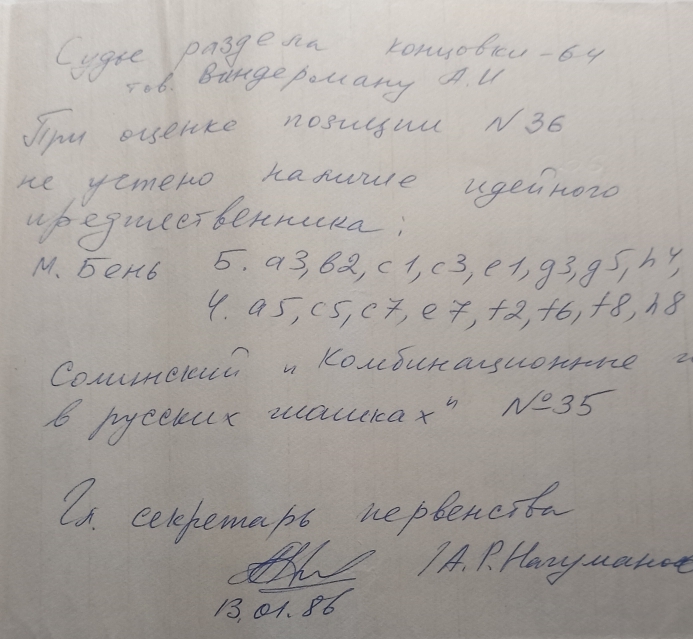 Судье раздела концовки-64
тов. Виндерману А.И
При оценке позиции N 36
не устено наличие идейного
предшественника:
М. Бень Б. a3, b2, c1, c3, e1, g3, g5, h4,
Ч. a5, c5, c7, e7, f2, f6, f8, h8
Соминский "Комбинационные
в русских шашках" №35
Гл. секретарь первенства
/А.Р.Нагуманов
13.01.86